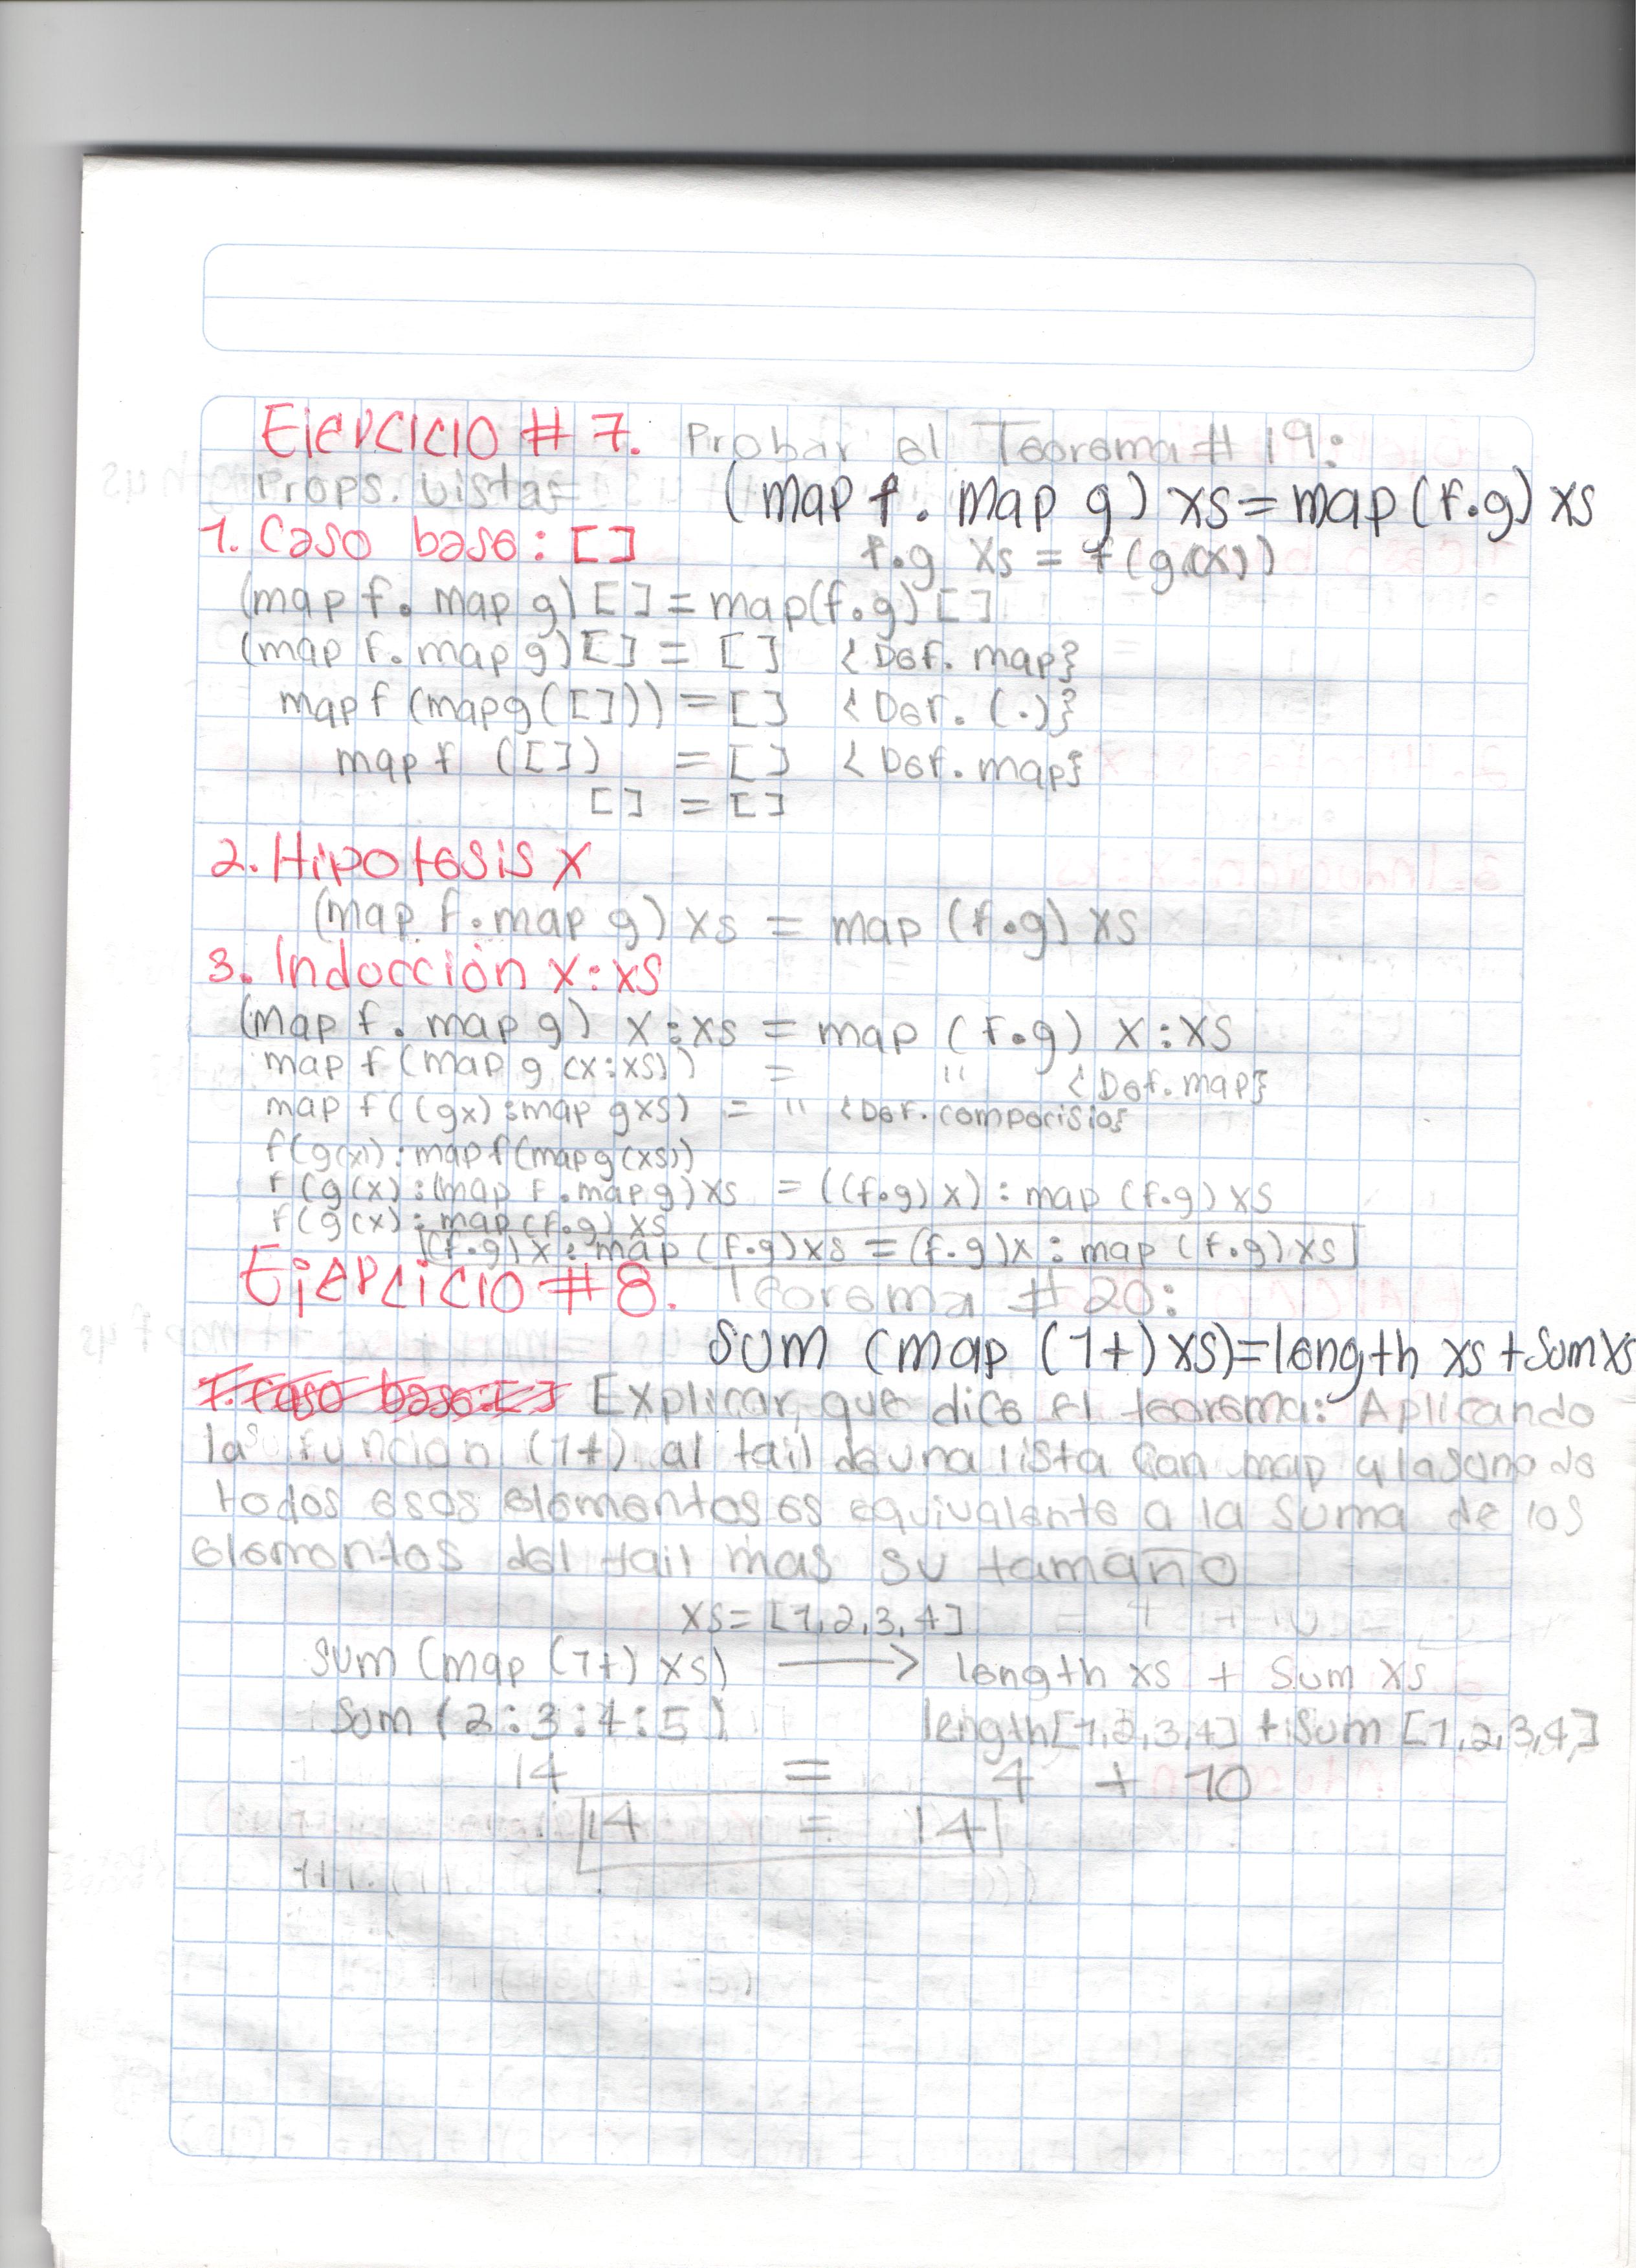 Ejercicio # 7. Probar el Teorema # 19:
Props. vistas (map f. map g) xs = map (f.g) xs
1. Caso base: [] f.g xs = f(g(x))
(map f. map g) [] = map(f.g) []
(map f. map g) [] = [] {Def. map}
map f (map g ([])) = [] {Def. (.)}
map f ([]) = [] {Def. map}
[] = []
2. Hipotesis x
(map f. map g) xs = map (f.g) xs
3. Inducción x:xs
(map f. map g) x:xs = map (f.g) x:xs
map f (map g (x:xs)) = " {Def. map}
map f ((gx) : map g xs) = " {Def. comporisio}
f(g(x)) : map f(map g (xs))
f(g(x) : (map f. map g) xs = ((f.g) x) : map (f.g) xs
f(g(x) : map (f.g) xs
(f.g) x : map (f.g) xs = (f.g)x : map (f.g) xs
Ejercicio # 8. Teorema # 20:
Sum (map (1+) xs) = length xs + Sum xs
1. Caso base: [] Explicar, que dice el teorema: Aplicando
la función (1+) al tail de una lista con map y la suma de
todos esos elementos es equivalente a la suma de los
elementos del tail mas su tamaño
xs = [1,2,3,4]
Sum (map (1+) xs) → length xs + Sum xs
Sum (2:3:4:5) length[1,2,3,4] + Sum [1,2,3,4]
14 = 4 + 10
14 = 14